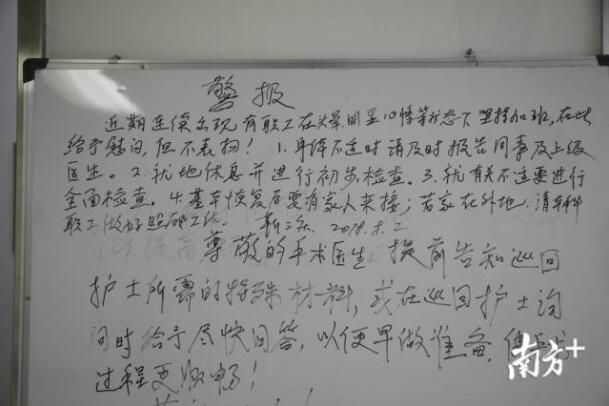 警报
近期连续出现有职工在头晕明显心悸等状态下坚持加班,在此
给予慰问,但不表扬! 1.身体不适时请及时报告同事及上级
医生。2.就地休息并进行初步检查。3.就有关不适要进行
全面检查。4.基本恢复后要有家人来接;若家在外地,请本科
职工做好照顾工作。 2018.8.2
尊敬的手术医生 提前告知巡回
护士所需的特殊材料,或在巡回护士询
问时给予尽快回答,以便早做准备,使手术
过程更顺畅!
南方+